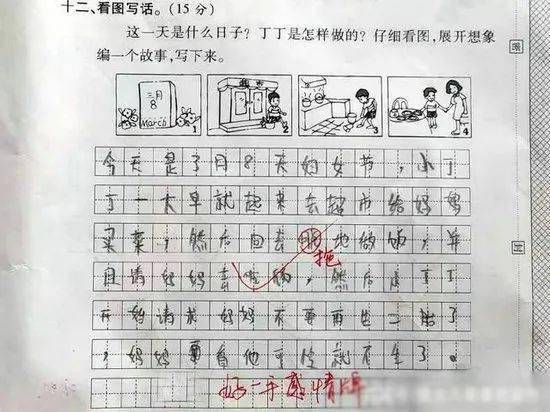 十二、看图写话。(15分)
这一天是什么日子？丁丁是怎样做的？仔细看图,展开想象
编一个故事,写下来。
三月
8
March
1
超市
2
3
4
今天是3月8天妇女节,小丁
丁一大早就起来去超市给妈妈
买菜,然后回去 地做饭,并
拖
且请妈妈去吃饭,然后是丁丁
开始请求妈妈不要再生二胎了
,妈妈要看他可怜就不生了。
好一手感情牌